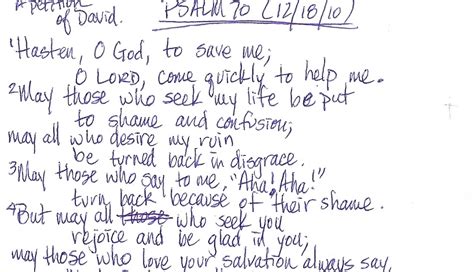 A petition of David. PSALM 70 (12/18/10)
1Hasten, O God, to save me;
O LORD, come quickly to help me.
2May those who seek my life be put
to shame and confusion;
may all who desire my ruin
be turned back in disgrace.
3May those who say to me, "Aha! Aha!"
turn back because of their shame.
4But may all those who seek you
rejoice and be glad in you;
may those who love your salvation always say,